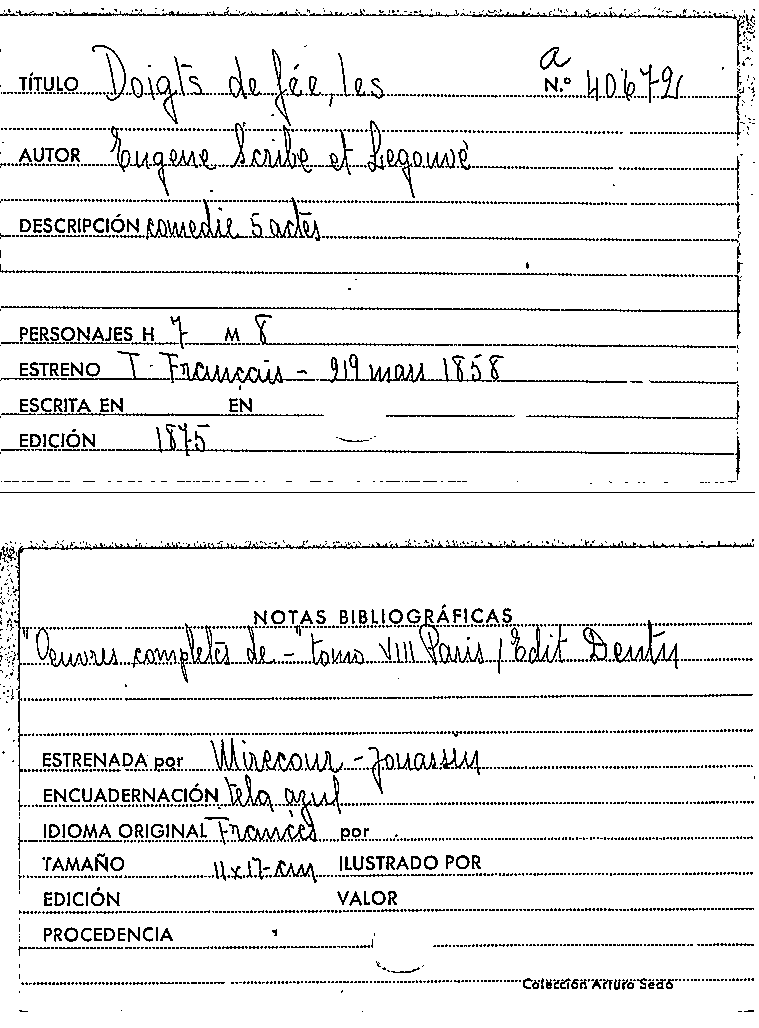 a
TÍTULO Doigts de fée, les N.º 40679
AUTOR Eugene Scribe et Legouvé
DESCRIPCIÓN comedie 5 actes
PERSONAJES H 7 M 8
ESTRENO T. Français - 1858
ESCRITA EN EN
EDICIÓN 1875
NOTAS BIBLIOGRÁFICAS
"Oeuvres completes de -" tomo VIII Paris / Edit Dentu
ESTRENADA por Mirecour - Jouassin
ENCUADERNACIÓN tela azul
IDIOMA ORIGINAL Francés por
TAMAÑO 11x17 cm ILUSTRADO POR
EDICIÓN VALOR
PROCEDENCIA
Colección Arturo Sedó